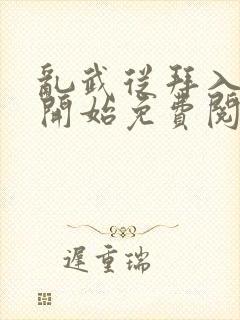 亂武從拜入
開始免費閱
遲重瑞